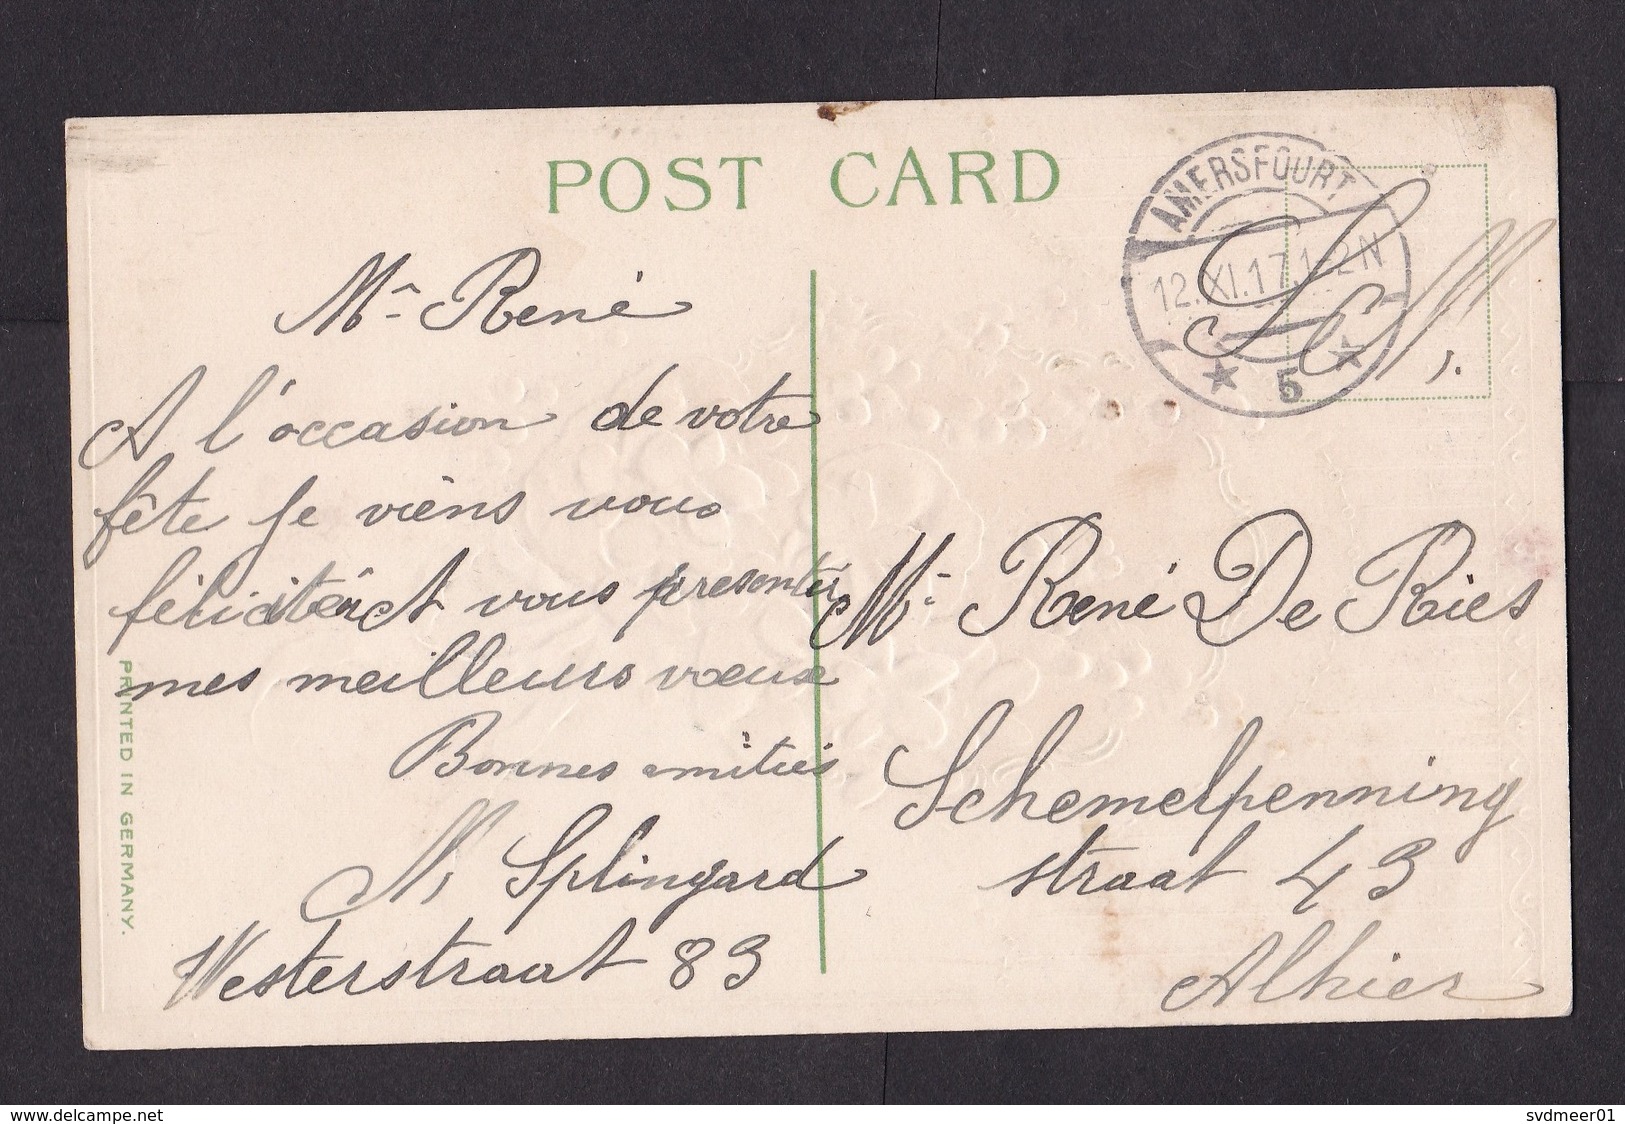 POST CARD
AMERSFOORT
12.XI.17.1-2N
5
S.M.
Mr René
A l'occasion de votre
fête je viens vous
féliciter et vous presenter
mes meilleurs vœux
Bonnes amitiés
Splingard
Westerstraat 83
Mr René De Ries
Schemelpenning
straat 43
Alhier
PRINTED IN GERMANY.
www.delcampe.net
svdmeer01